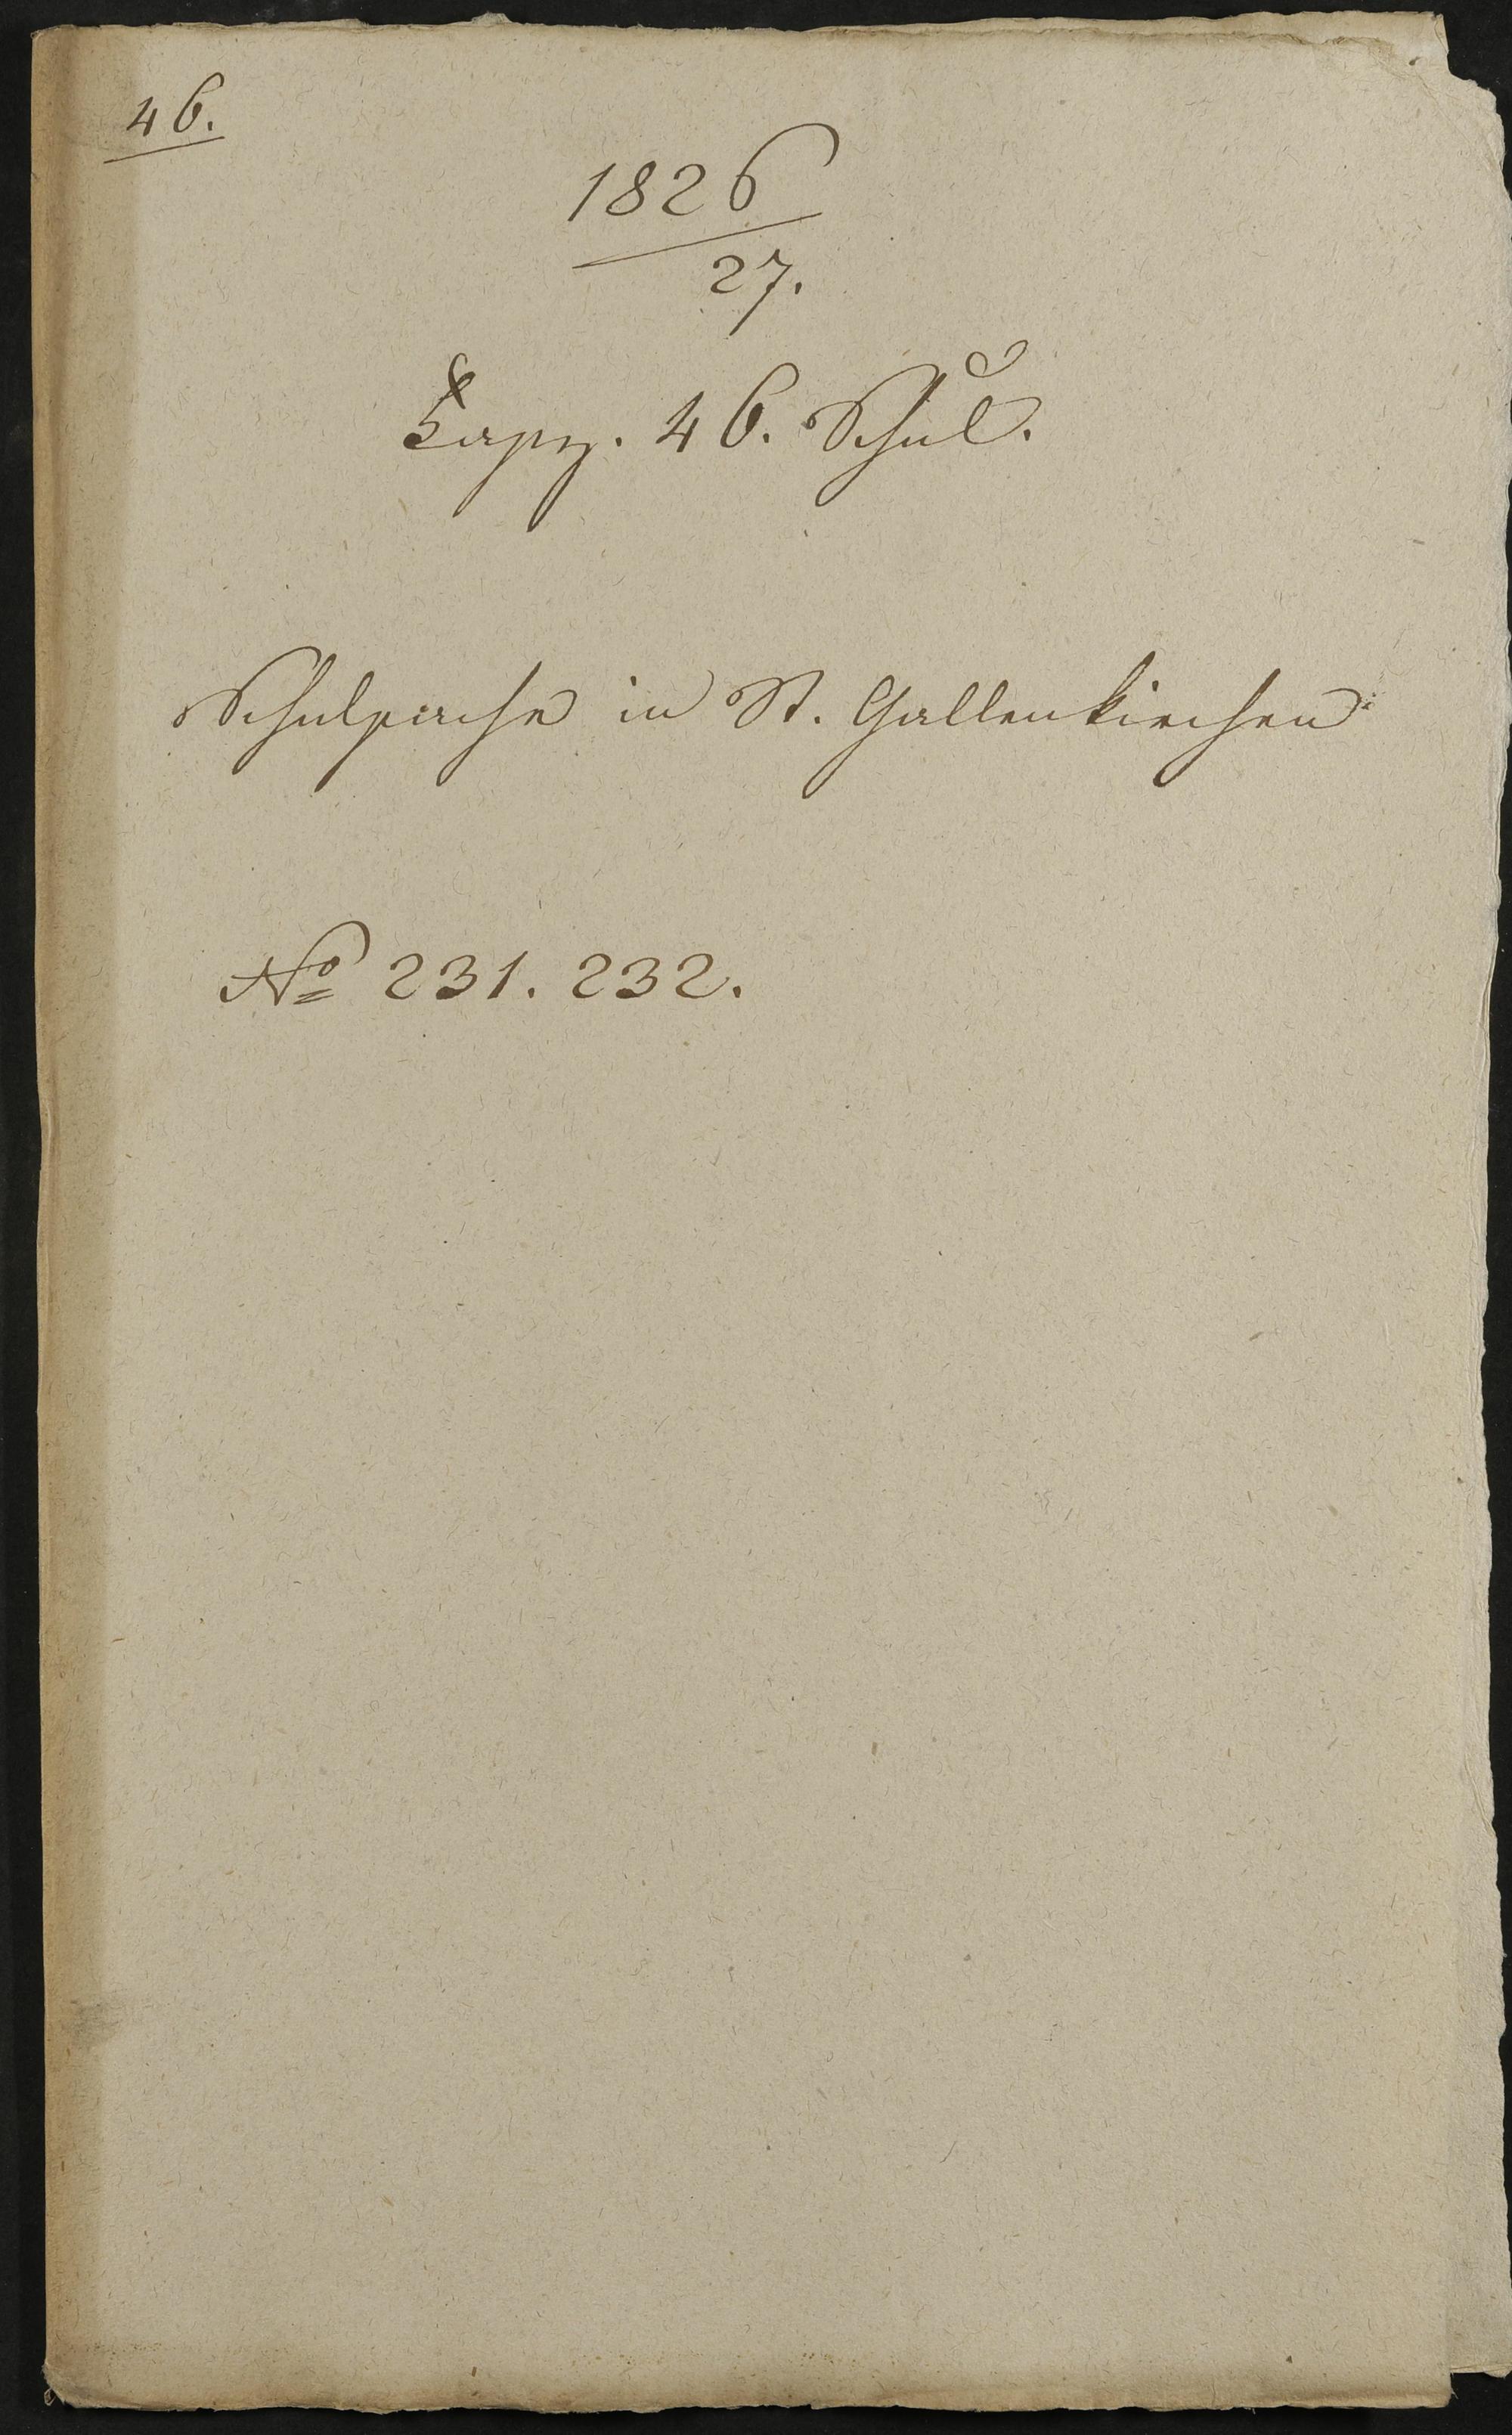 46.
1826
27.
Fasz. 46. Schul.
Schulsache in St. Gallenkirchen
No 231. 232.